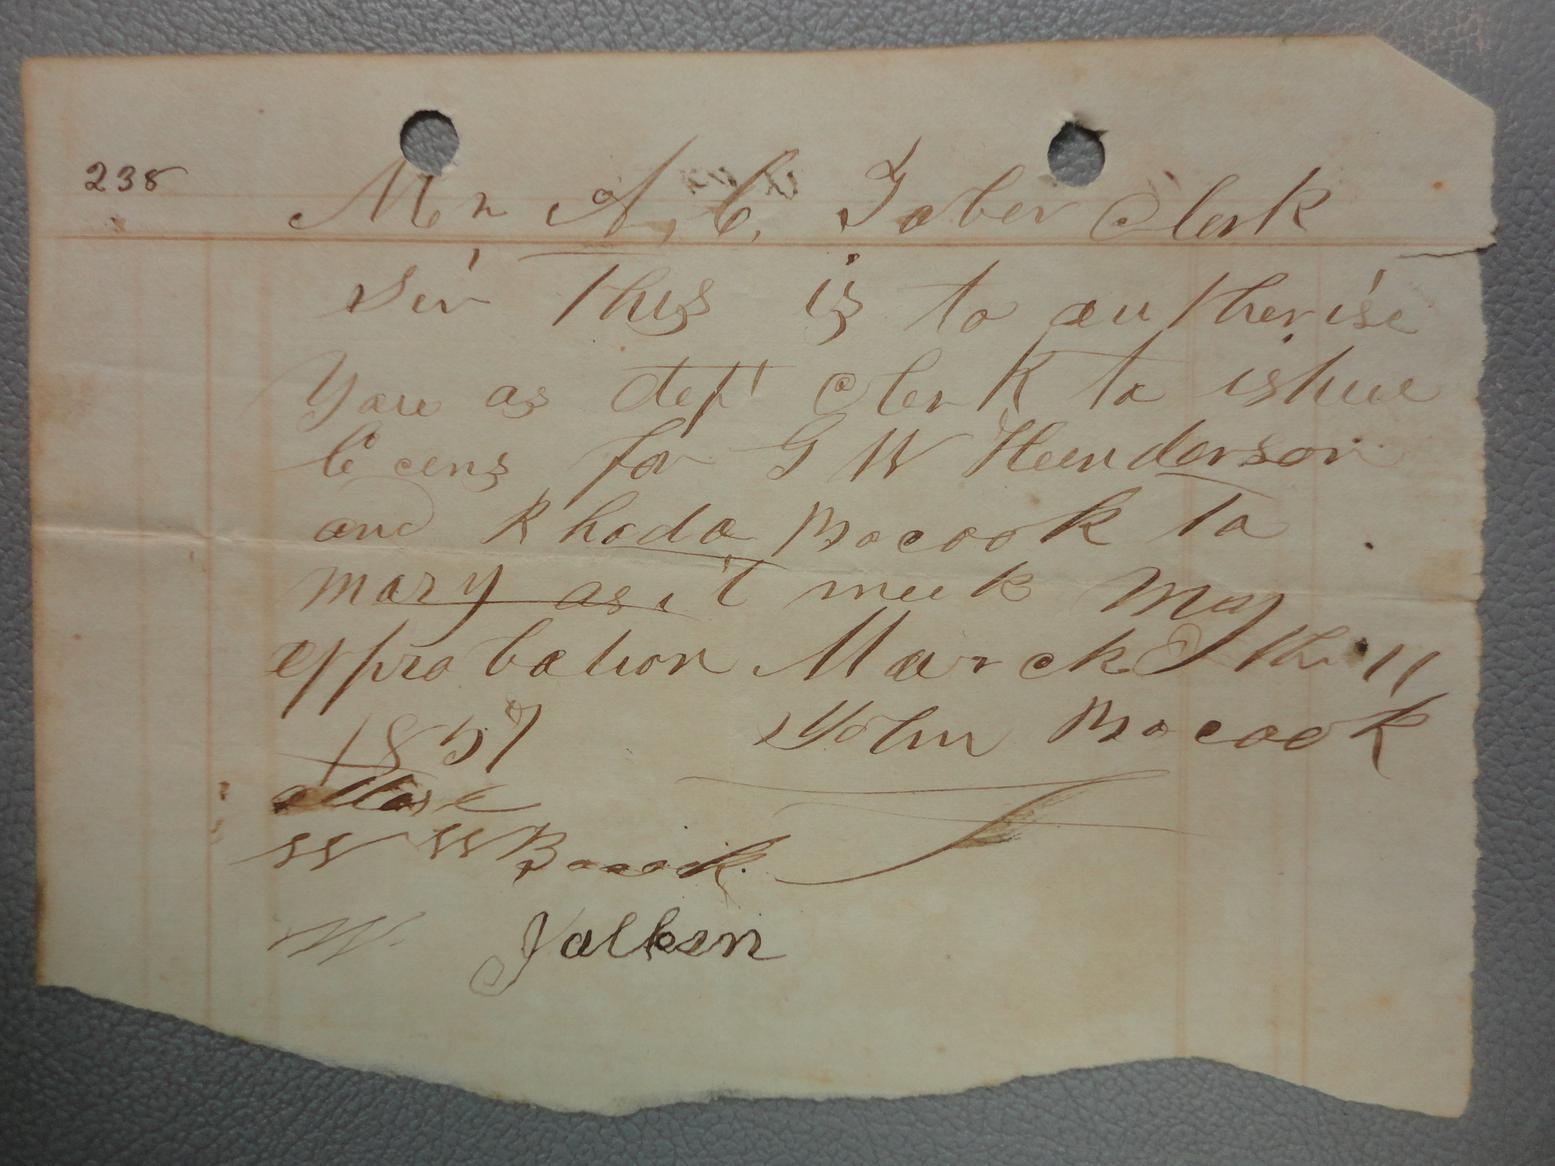 238
Mr A, C, Tober Clerk
Sir this is to autherise
You as dept Clerk to ishue
licens for G W Heenderson
and Rhoda Bocook to
mary as it meek my
approbation March the 11
1857 John Bocook
attest
W W Bocook
W. Jalken